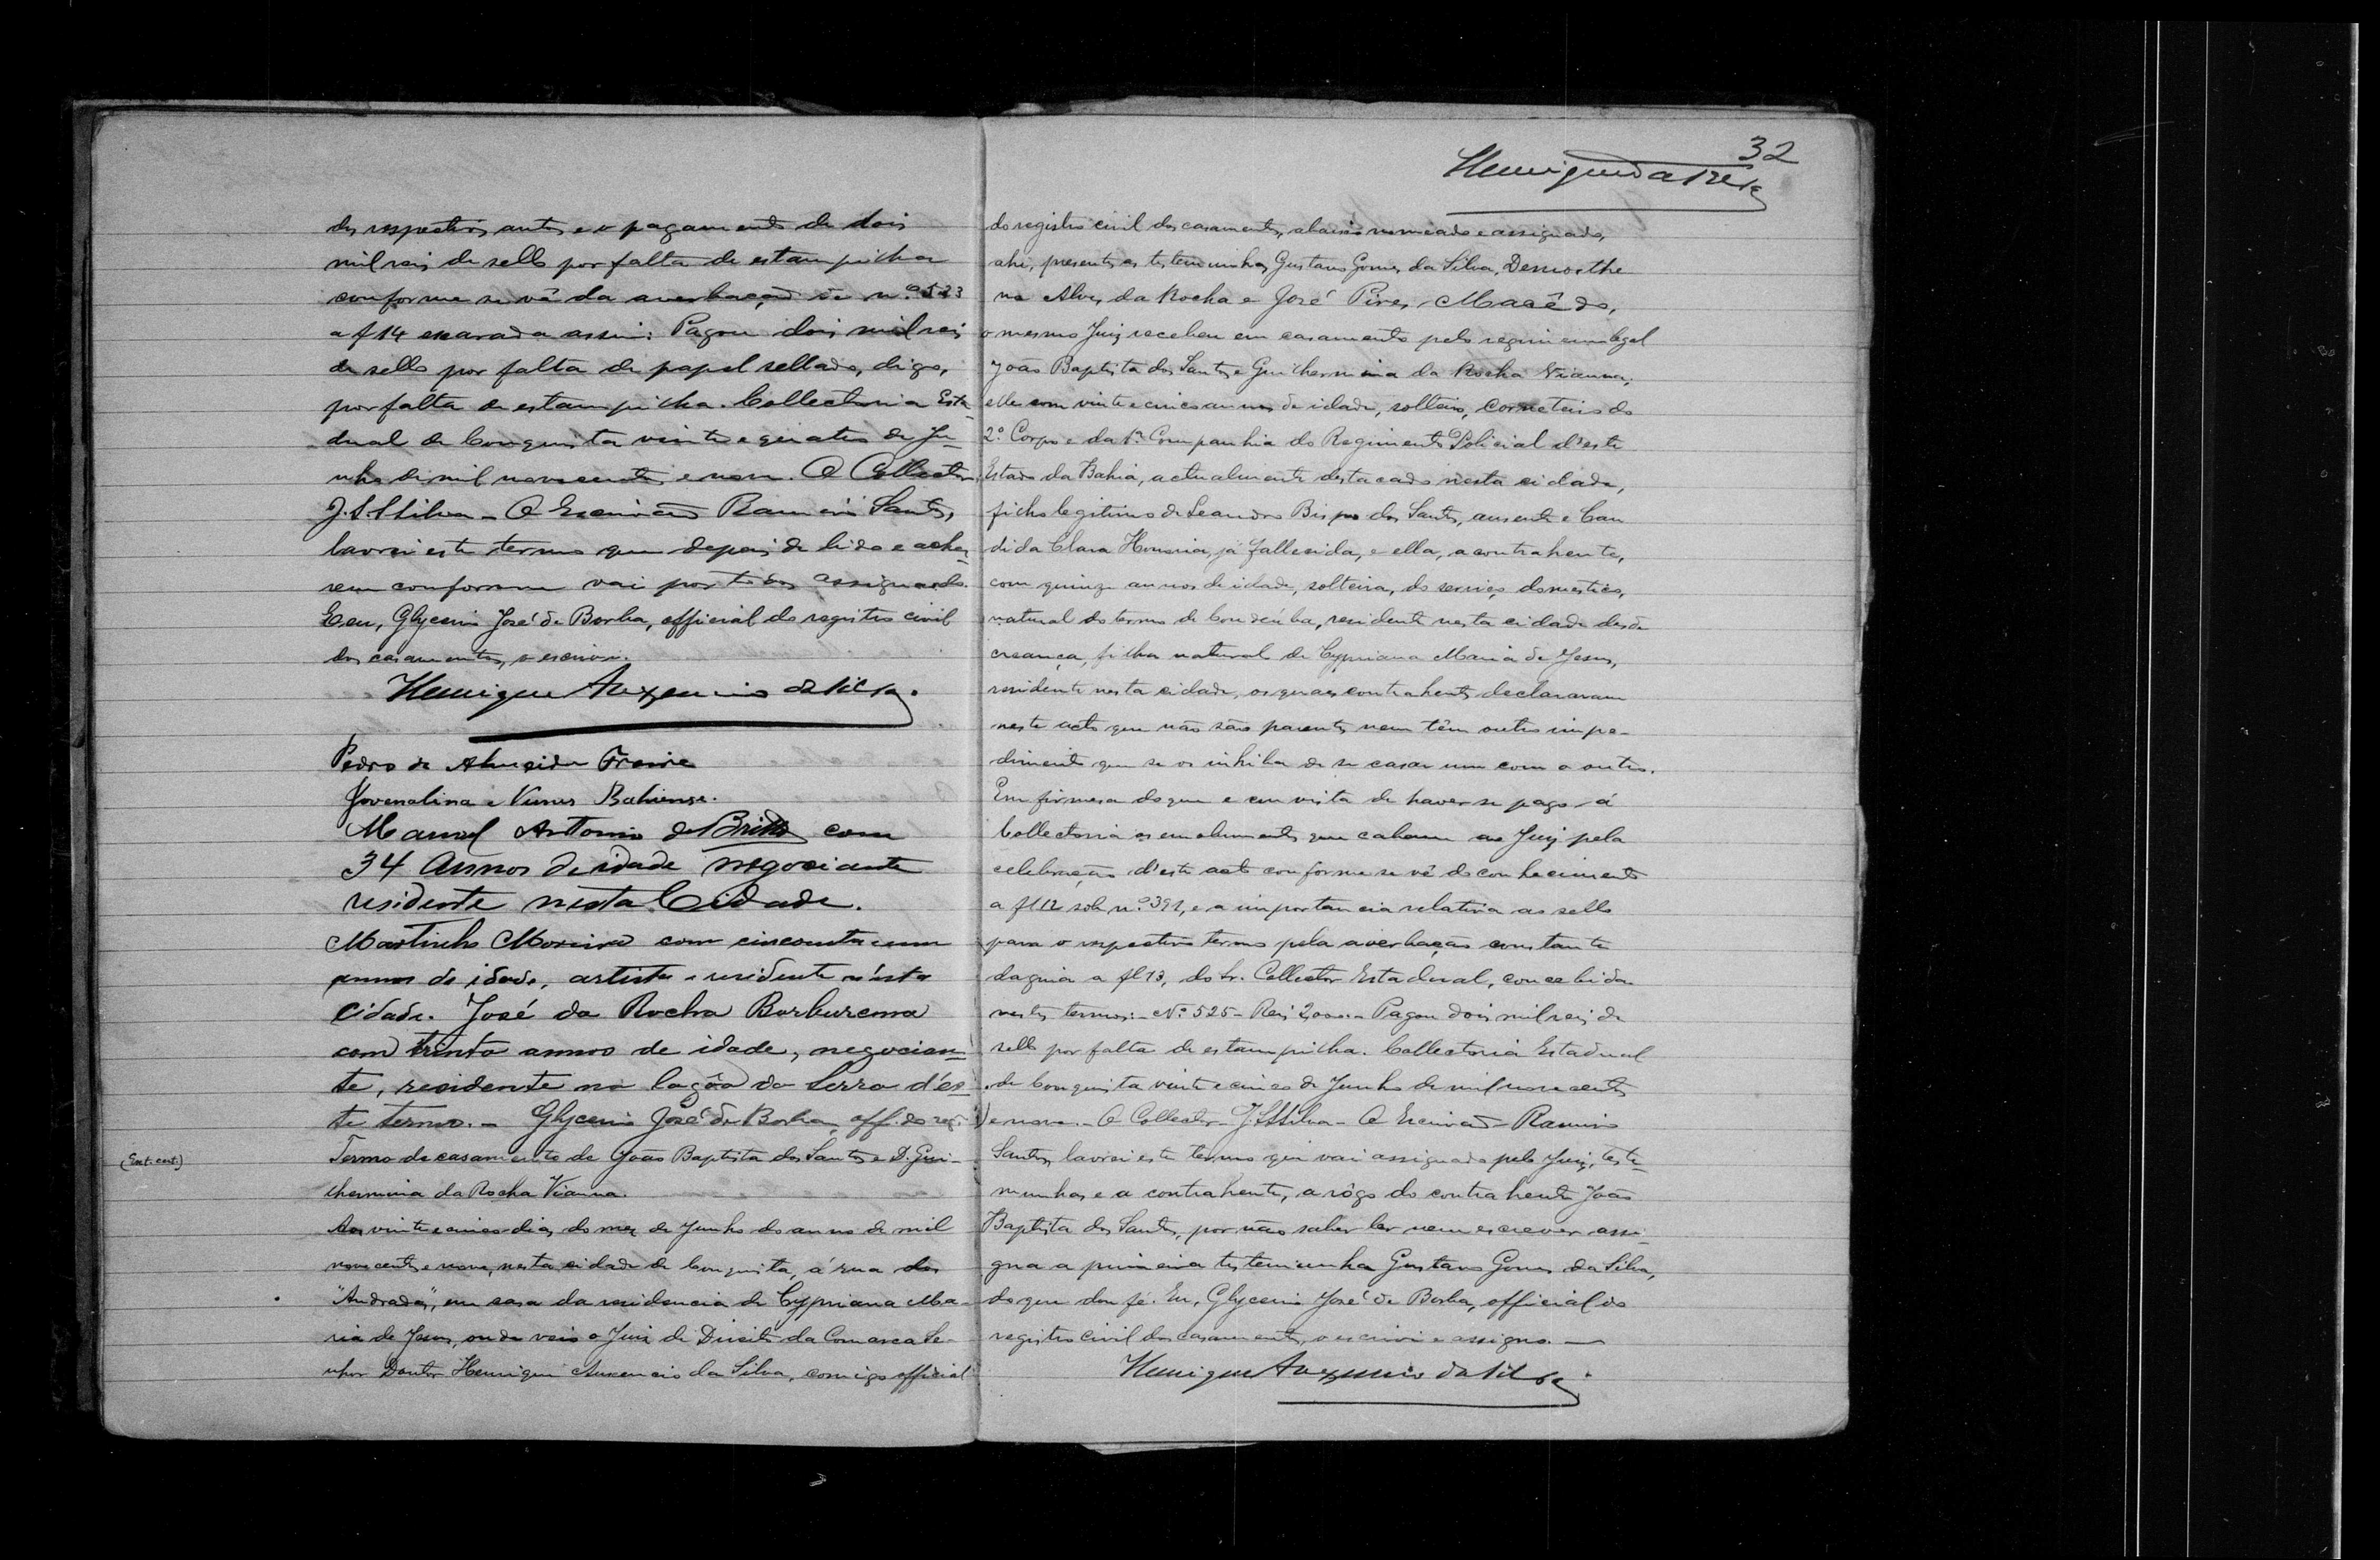 dos respectivos autos e o pagamento de dois
mil reis de sello por falta de estampilha
conforme se vê da averbação de n.º 523
a f 14 exarada assim: Pagou dois mil reis
de sello por falta de papel sellado, digo,
por falta de estampilha. Collectoria Esta-
dual de Conquista vinte e quatro de Ju-
nho de mil novecentos e nove. O Collector
J. S. Silva - O Escrivão Ramiro Santos,
lavrei este termo que depois de lido e acha-
rem conforme vai por todos assignado.
E eu, Glycerio José de Borba, official do registro civil
dos casamentos, o escrevi.
Henrique Auxencio da Silva.
Pedro de Almeida Freire
Jovenalina e Nunes Bahiense.
Manoel Antonio de Britto com
34 Annos de idade negociante
residente nesta Cidade.
Martinho Moreira com cincoenta e um
annos de idade, artista e residente n'ésta
Cidade. José da Rocha Borburema
com trinta annos de idade, negocian-
te, residente na lagôa da Serra d'és-
te termo. - Glycerio José de Borba, off. do reg.
(Ext. cert.)
Termo de casamento de João Baptista dos Santos e D. Gui-
lhermina da Rocha Vianna.
Aos vinte e cinco dias do mez de Junho do anno de mil
novecentos e nove, nesta cidade de Conquista, á rua dos
"Andradas", em casa da residencia de Cypriana Ma-
ria de Jesus, onde veio o Juiz de Direito da Comarca Se-
nhor Doutor Henrique Auxencio da Silva, comigo official
32
Henrique da Silva
do registro civil dos casamentos, abaixo nomeado e assignado,
ahi, presentes as testemunhas Gustavo Gomes da Silva, Demosthe
nes Alves da Rocha e José Pires Macêdo,
o mesmo Juiz recebeu em casamento pelo regimem legal
João Baptista dos Santos e Guilhermina da Rocha Vianna;
elle com vinte e cinco annos de idade, solteiro, Corneteiro do
2.º Corpo e da 1.ª Companhia do Regimento Policial d'este
Estado da Bahia, actualmente destacado nesta cidade,
filho legitimo de Leandro Bispo dos Santos, ausente e Can
dida Clara Honoria, já fallecida, e ella, a contrahente,
com quinze annos de idade, solteira, do serviço domestico,
natural do termo de Condeúba, residente nesta cidade desde
creança, filha natural de Cypriana Maria de Jesus,
residente nesta cidade, os quaes contrahentes declararam
neste acto que não são parentes nem têm outro impe-
dimento que se os inhiba de se casar um com o outro.
Em firmesa do que e em vista de haver se pago á
Collectoria os emolumentos que cabem ao Juiz pela
celebração d'este acto conforme se vê do conhecimento
a fl 12 sob n.º 391, e a importancia relativa ao sello
para o respectivo termo pela averbação constante
da guia a fl 13, do Sr. Collector Estadual, concebida
nestes termos: - N.º 525 - Reis 2,000. - Pagou dois mil reis de
sello por falta de estampilha. Collectoria Estadual
de Conquista vinte e cinco de Junho de mil novecentos
e nove. - O Collector - J. S. Silva - O Escrivão - Ramiro
Santos, lavrei este termo que vai assignado pelo Juiz, teste-
munhas e a contrahente, a rôgo do contrahente João
Baptista dos Santos, por não saber ler nem escrever assi-
gna a primeira testemunha Gustavo Gomes da Silva,
do que dou fé. Eu, Glycerio José de Borba, official do
registro civil dos casamentos, o escrevi e assigno. -
Henrique Auxencio da Silva.